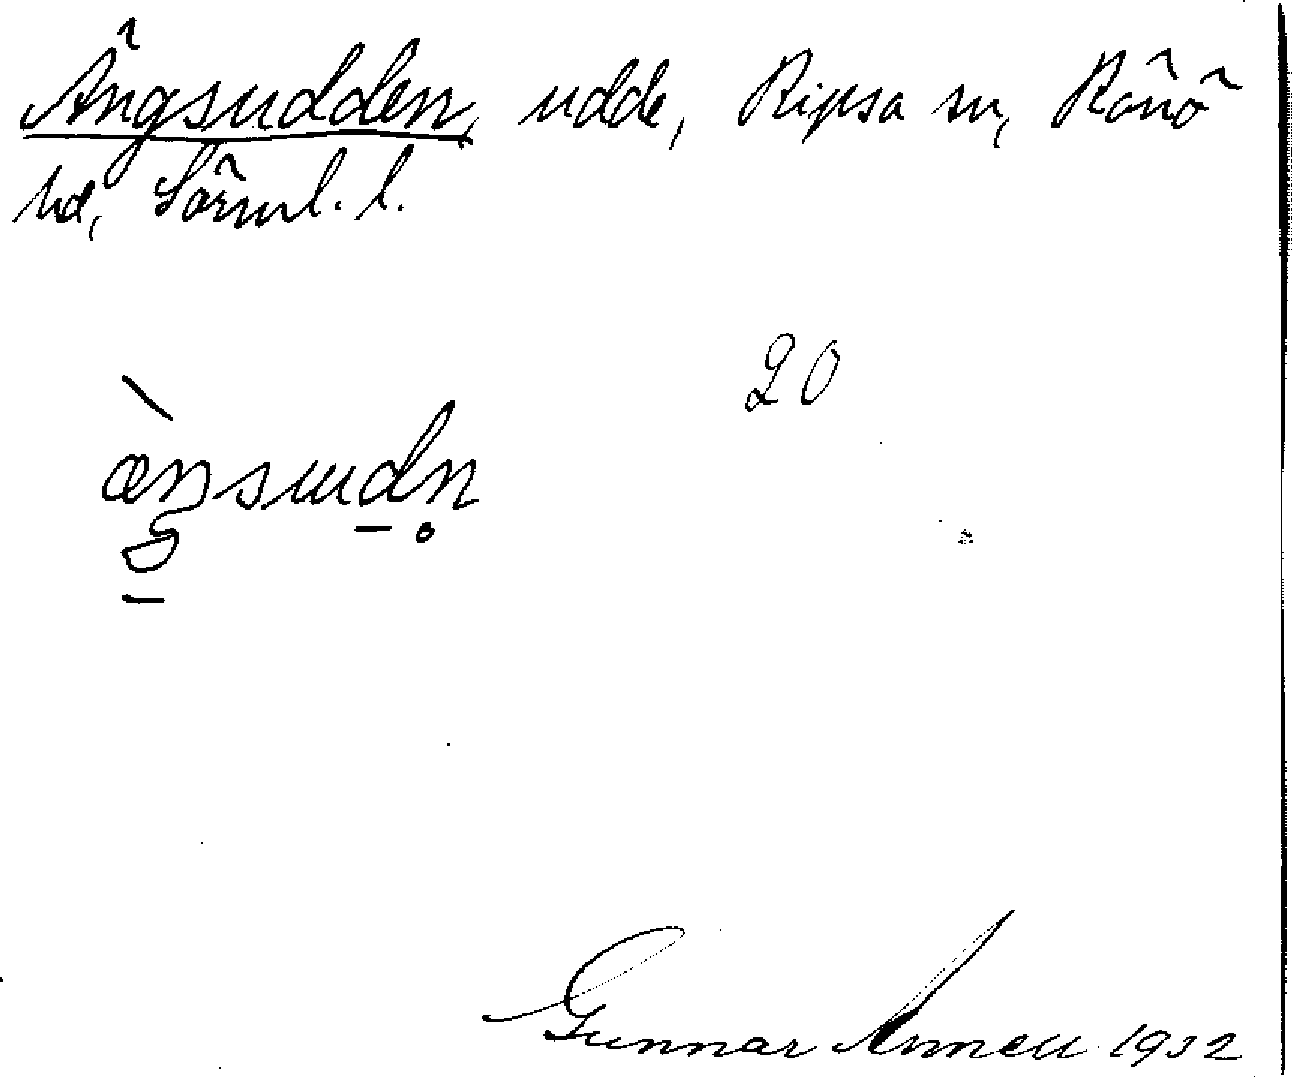 Ängsudden, udde, Ripsa sn, Rönö
hd, Sörml. l.
20
Gunnar Annell 1932